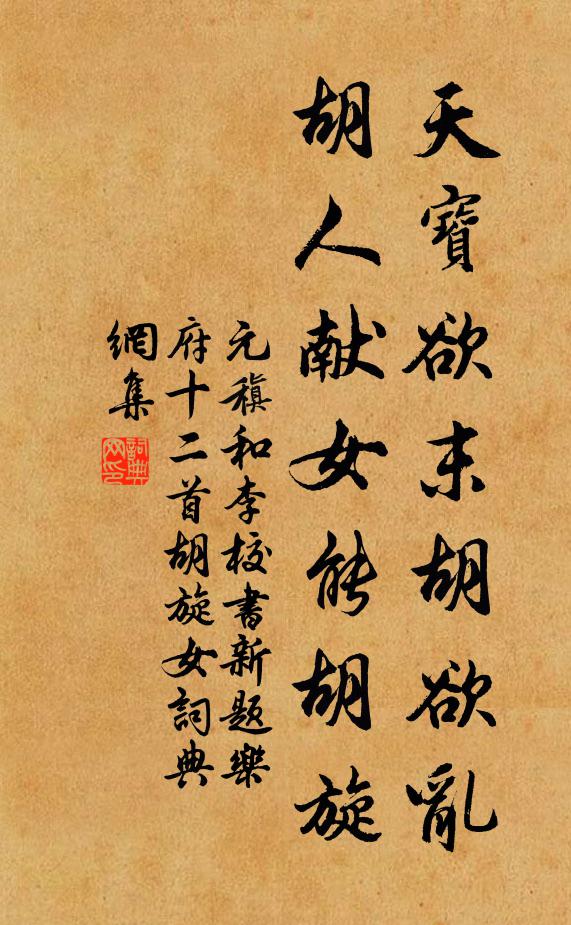 天寶欲末胡欲亂
胡人献女能胡旋
元稹和李校書新题樂
府十二首胡旋女詞典
網集
詞典网印